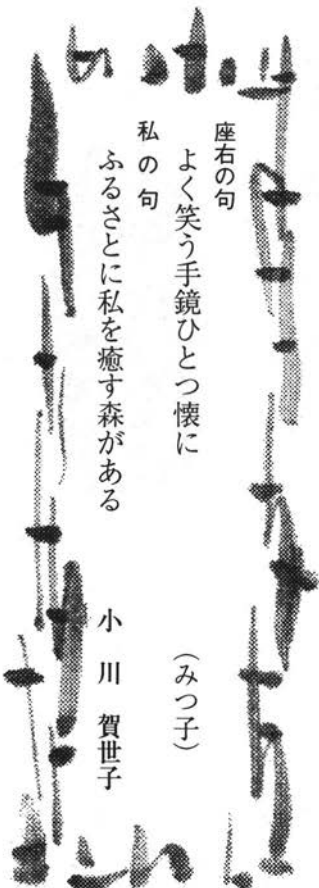 座右の句
よく笑う手鏡ひとつ懐に
（みつ子）
私の句
ふるさとに私を癒す森がある
小川 賀世子